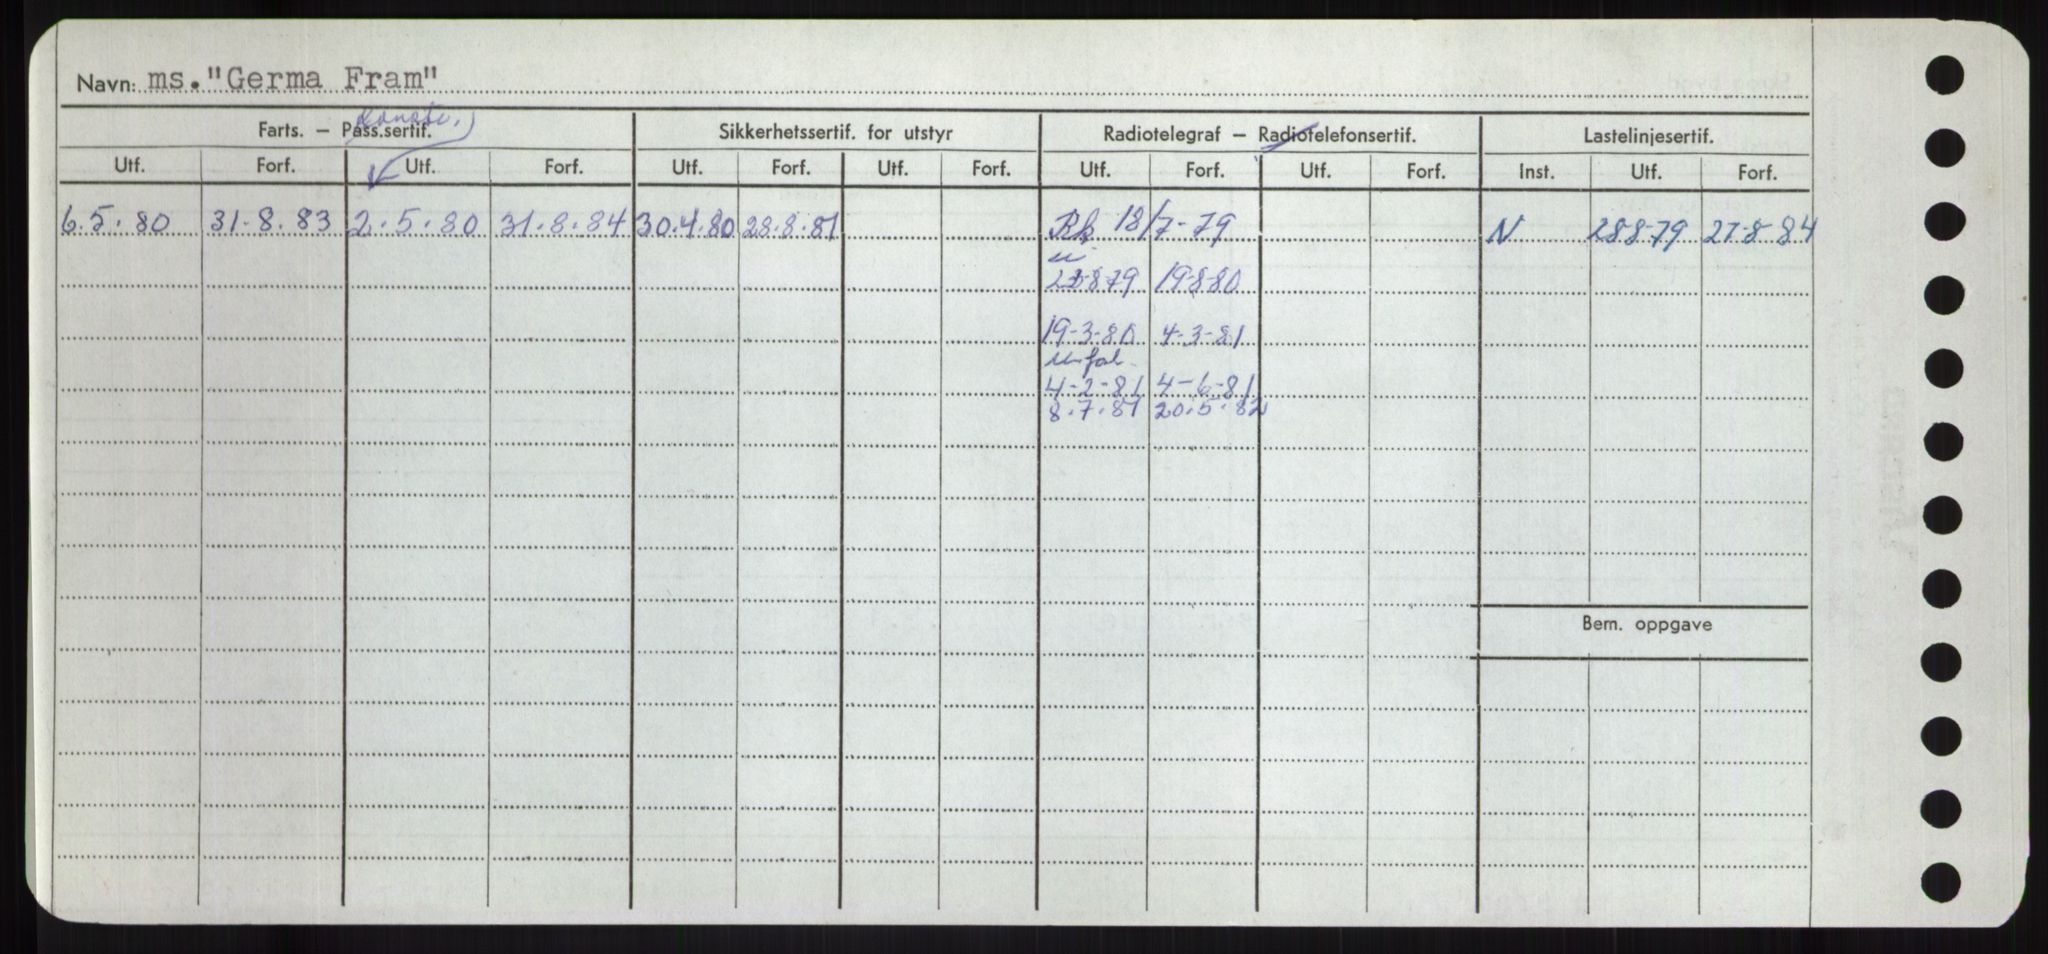 Navn: ms."Germa Fram"
Konstr.
Farts. – Pass.sertif. Sikkerhetssertif. for utstyr Radiotelegraf – Radiotelefonsertif. Lastelinjesertif.
Utf. Forf. Utf. Forf. Utf. Forf. Utf. Forf. Utf. Forf. Utf. Forf. Inst. Utf. Forf.
6.5.80 31.8.83 2.5.80 31.8.84 30.4.80 28.8.81 Rk 18/7-79 N 28-8-79 27-8-84
879 19-8-80
19-3-80 4-3-81
4-2-81 4-6-81
8.7.81 20.5.82
Bem. oppgave